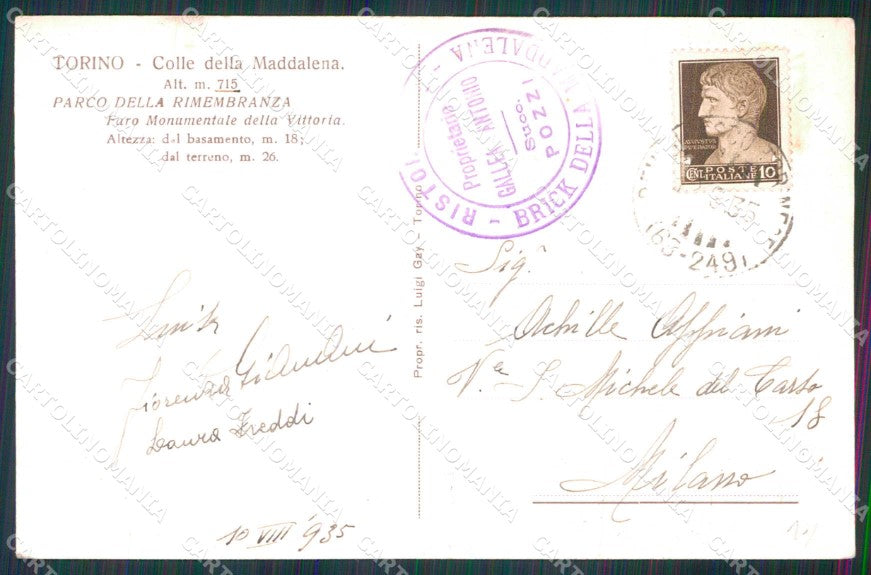 TORINO - Colle della Maddalena.
Alt. m. 715
PARCO DELLA RIMEMBRANZA
Faro Monumentale della Vittoria.
Altezza: dal basamento, m. 18;
dal terreno, m. 26.
RISTO - BRICK DELLA MADDALENA -
Proprietario
GALLEA ANTONIO
Succ.
POZZI
AUGUSTUS
IMPERATOR
CENT. POSTE ITALIANE 10
35
(63-249)
Propr. ris. Luigi Gay - Torino
Sig.
Achille Affriani
Va S. Michele del Carso
18
Milano
Fiorenza
Laura Freddi
10 VIII 935
CARTOLINOMANIA